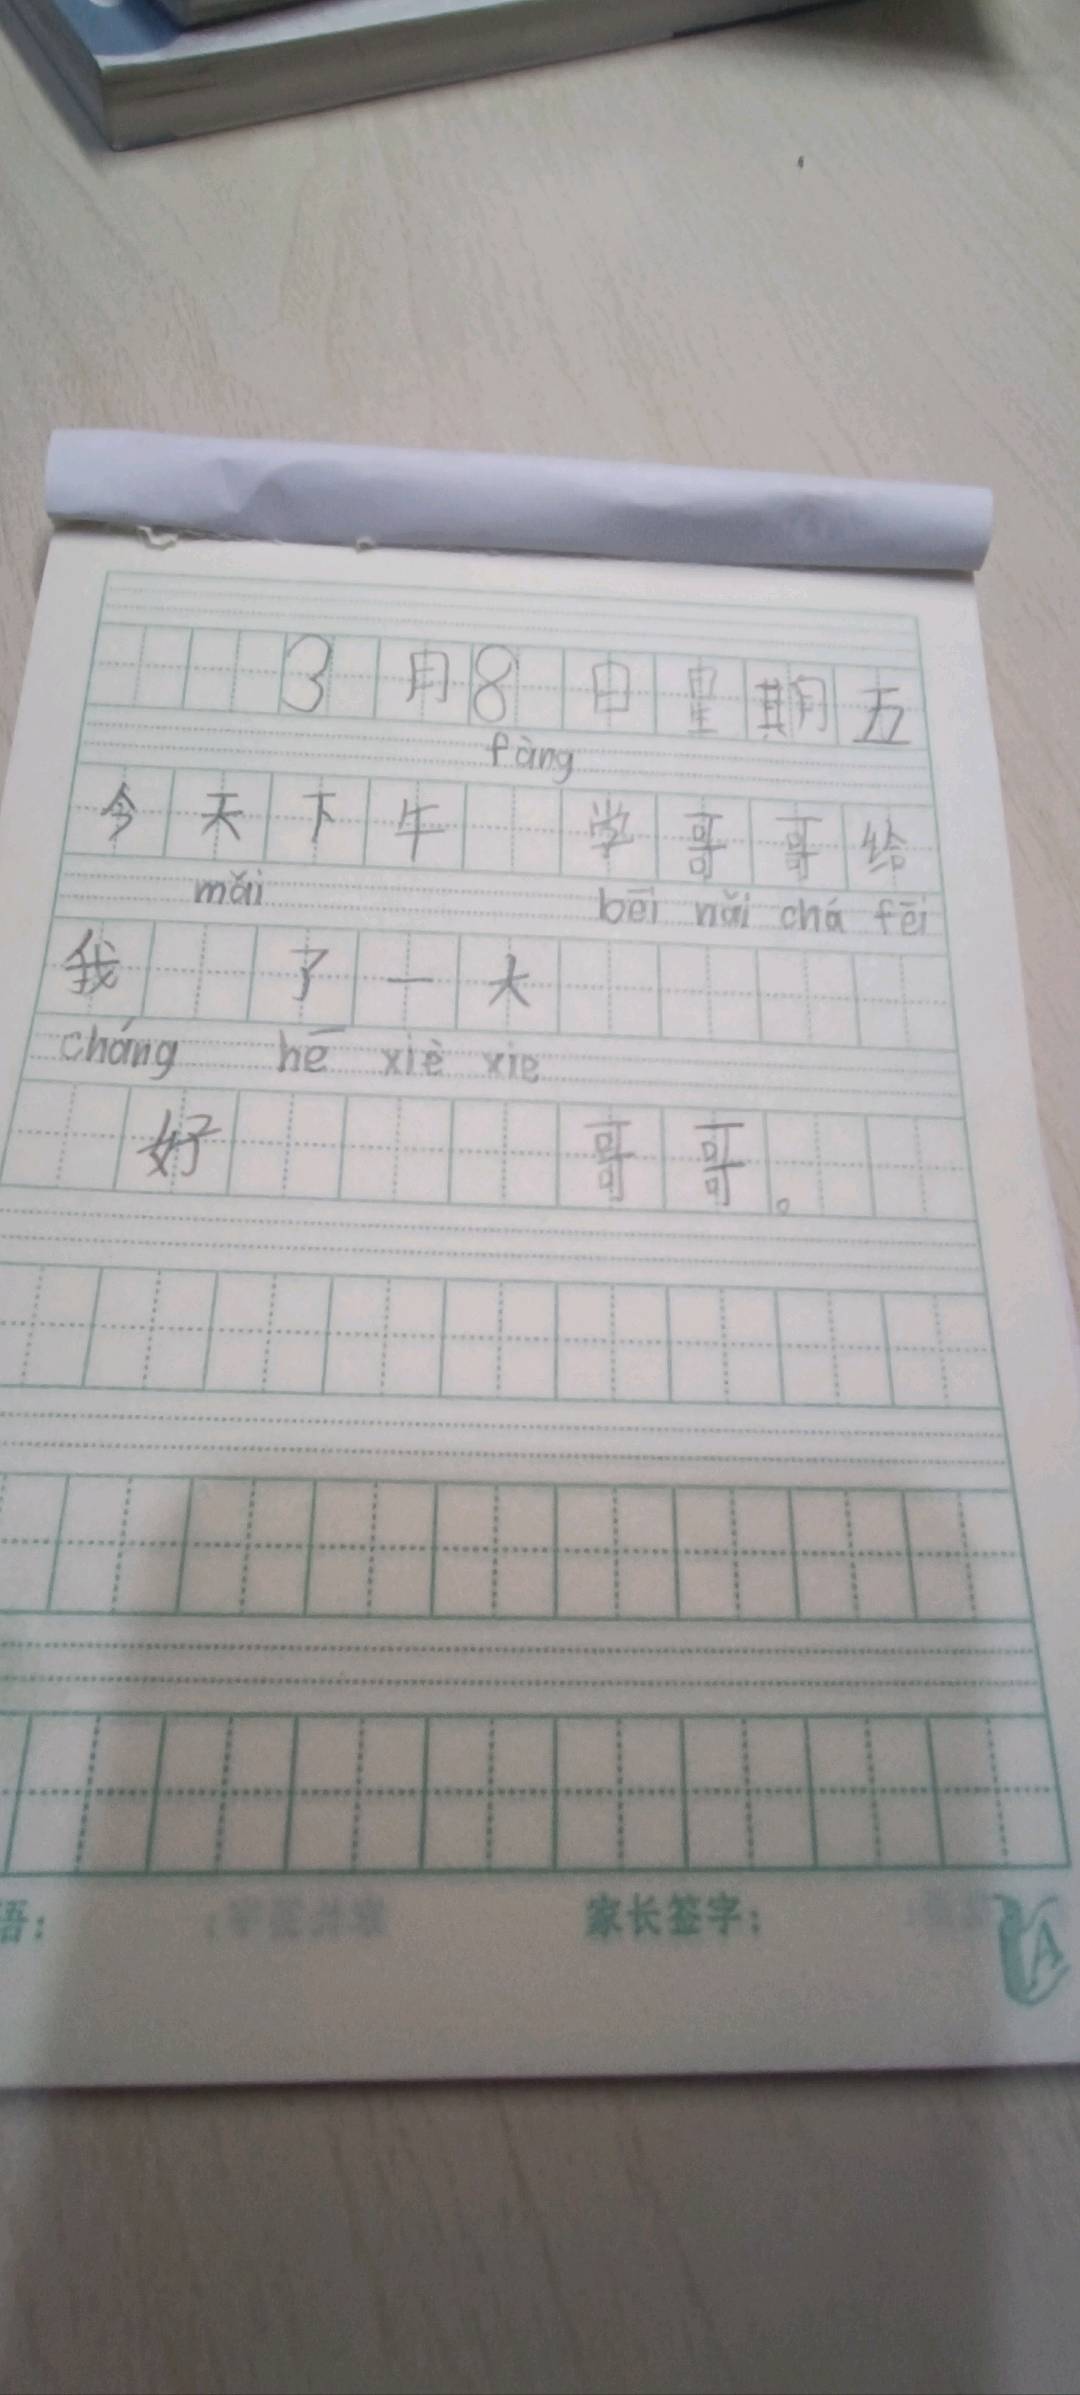 3月8日星期五
fàng
今天下午 学哥哥给
mǎi bēi nǎi chá fēi
我 了一大
cháng hē xiè xie
好 哥哥。
语： 家长签字：